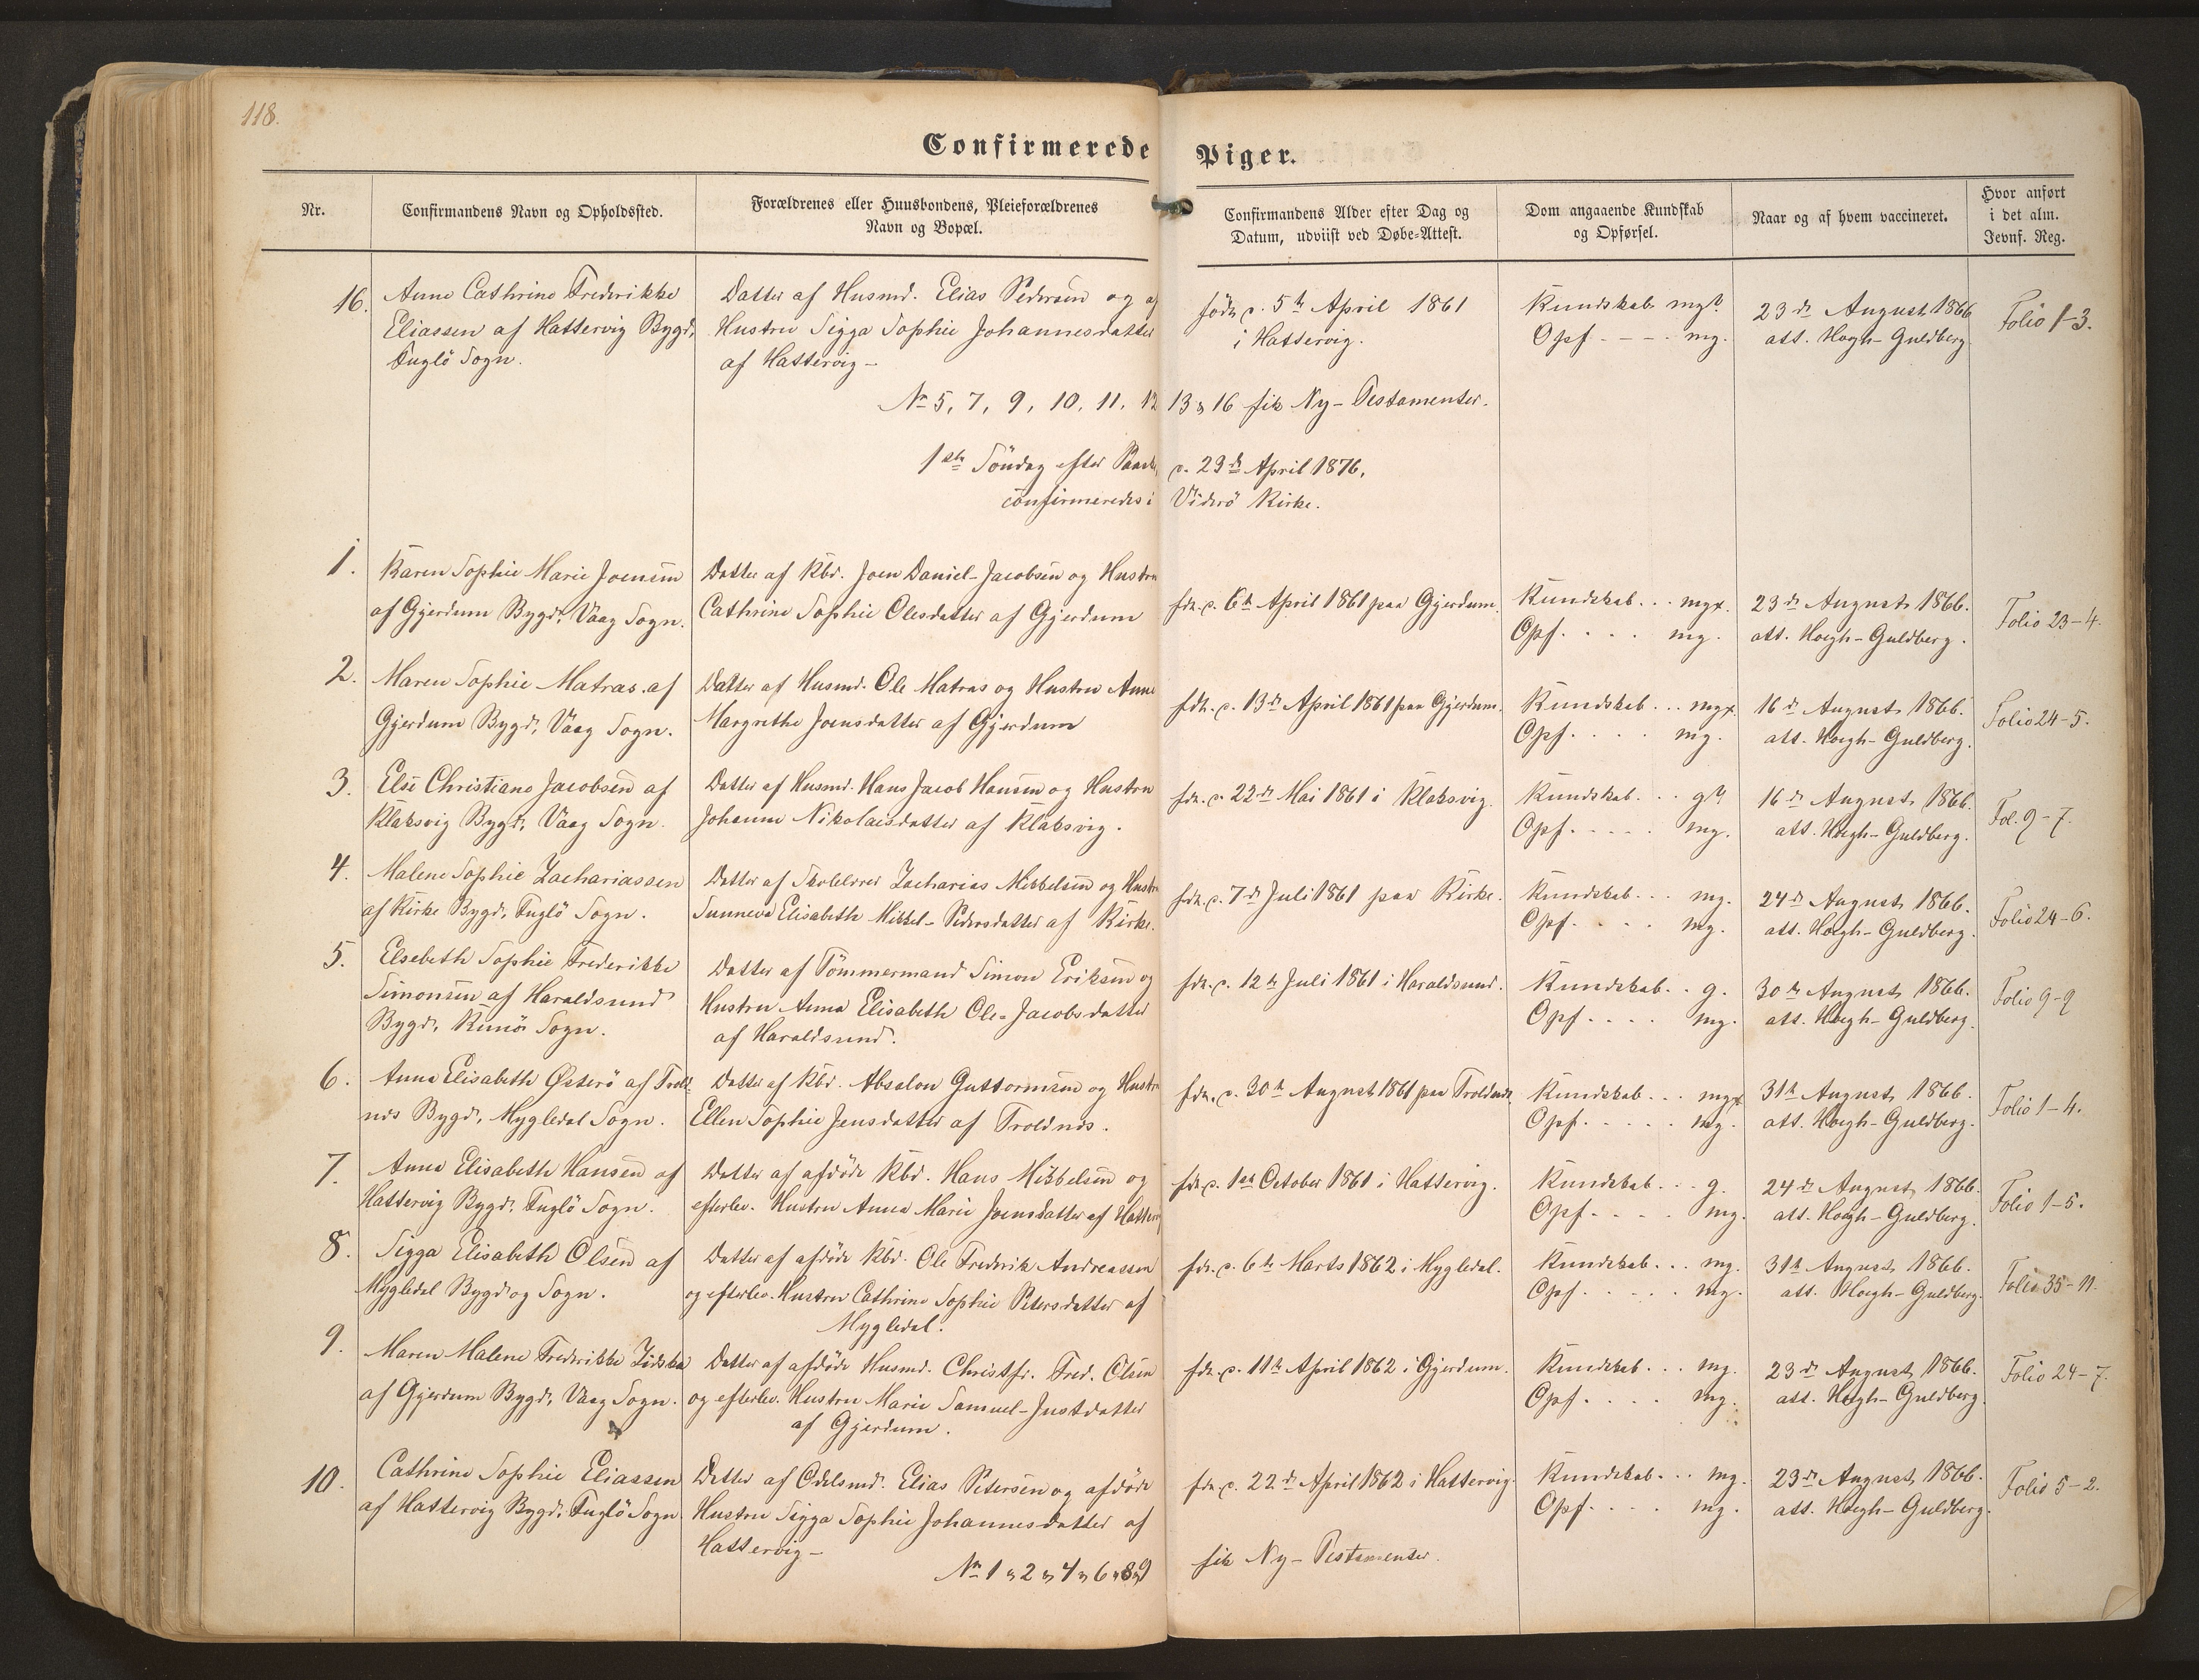 118.
Confirmerede Piger.
Nr.
Confirmandens Navn og Opholdssted.
Forældrenes eller Huusbondens, Pleieforældrenes
Navn og Bopæl.
Confirmandens Alder efter Dag og
Datum, udviist ved Døbe-Attest.
Dom angaaende Kundskab
og Opførsel.
Naar og af hvem vaccineret.
Hvor anført
i det alm.
Jevnf. Reg.
16.
Anne Cathrine Frederikke
Eliassen af Hattervig Bygd,
Fuglö Sogn.
Datter af Husmd. Elias Pedersen og af
Hustru Sigga Sophie Johannesdatter
af Hattervig –
födt d. 5te April 1861
i Hattervig.
Kundskab mg?
Opf - - - - mg.
23de August 1866
att. Hoegh-Guldberg
Folio 1-3.
No 5, 7, 9, 10, 11, 12 13 & 16 fik Ny-Testamenter.
1ste Söndag efter Paaske d. 23de April 1876,
confirmeredes i Viderö Kirke.
1.
Karen Sophie Marie Joensen
af Gjerdum Bygd, Vaag Sogn.
Datter af Kbd. Joen Daniel-Jacobsen og Hustru
Cathrine Sophie Olesdatter af Gjerdum
fdt. d. 6te April 1861 paa Gjerdum.
Kundskab . . . mgx.
Opf. . . . mg.
23de August 1866.
att. Hoegh-Guldberg.
Folio 23-4.
2.
Maren Sophie Matras af
Gjerdum Bygd, Vaag Sogn.
Datter af Husmd. Ole Matras og Hustru Anne
Margrethe Joensdatter af Gjerdum
fdt. d. 13de April 1861 paa Gjerdum.
Kundskab . . . mgx.
Opf. . . . mg.
16de August 1866.
att. Hoegh-Guldberg.
Folio 24-5.
3.
Else Christiane Jacobsen af
Klaksvig Bygd, Vaag Sogn.
Datter af Husmd. Hans Jacob Hansen og Hustru
Johanne Nikolaisdatter af Klaksvig.
fdt. d. 22de Mai 1861 i Klaksvig.
Kundskab . . . g?
Opf. . . . . mg.
16de August 1866.
att. Hoegh-Guldberg.
Fol. 9-7.
4.
Malene Sophie Zachariassen
af Kirke Bygd, Fuglö Sogn.
Datter af Skolelærer Zacharias Mikkelsen og Hustru
Sunneva Elisabeth Mikkel-Pedersdatter af Kirke.
fdt. d. 7de Juli 1861 paa Kirke.
Kundskab . . . mg.
Opf. . . . mg.
24de August 1866.
att. Hoegh-Guldberg.
Folio 24-6.
5.
Elsebeth Sophie Frederikke
Simonsen af Haraldsund
Bygd, Kunö Sogn.
Datter af Tömmermand Simon Eriksen og
Hustru Anna Elisabeth Ole-Jacobsdatter
af Haraldsund.
fdt. d. 12te Juli 1861 i Haraldsund.
Kundskab . . g.
Opf. . . . mg.
30te August 1866.
att. Hoegh-Guldberg.
Folio 9-9
6.
Anna Elisabeth Østerö af Trold-
nes Bygd, Mygledal Sogn.
Datter af Kbd. Absalon Guttormsen og Hustru
Ellen Sophie Jensdatter af Troldnes.
fdt. d. 30te August 1861 paa Troldnes.
Kundskab . . . mgx
Opf. . . . . mg.
31te August 1866.
att. Hoegh-Guldberg.
Folio 1-4.
7.
Anna Elisabeth Hansen af
Hattervig Bygd, Fuglö Sogn.
Datter af afdöde Kbd. Hans Mikkelsen og
efterlev. Hustru Anna Marie Joensdatter af Hatterv
fdt. d. 1ste October 1861 i Hattervig.
Kundskab . . . g.
Opf. . . . mg.
24de August 1866.
att. Hoegh-Guldberg.
Folio 1-5.
8.
Sigga Elisabeth Olsen af
Mygledal Bygd og Sogn.
Datter af afdöde Kbd. Ole Frederik Andreassen
og efterlev. Hustru Cathrine Sophie Petersdatter af
Mygledal.
fdt. d. 6te Marts 1862 i Mygledal.
Kundskab . . . mg.
Opf. . . . . mg.
31te August 1866.
att. Hoegh-Guldberg.
Folio 35-11.
9.
Maren Malene Frederikke
af Gjerdum Bygd, Vaag Sogn.
Datter af afdöde Husmd. Christfr. Fred. Olsen
og efterlev. Hustru Marie Samuel-Justdatter
af Gjerdum.
fdt. d. 11te April 1862 i Gjerdum.
Kundskab . . . mg.
Opf. . . . mg.
23de August 1866.
att. Hoegh-Guldberg.
Folio 24-7.
10.
Cathrine Sophie Eliassen
af Hattervig Bygd, Fuglö Sogn.
Datter af Odelsmd. Elias Petersen og afdöde
Hustru Sigga Sophie Johannesdatter af
Hattervig –
fdt. d. 22de April 1862 i Hattervig.
Kundskab . . . mg.
Opf. . . . mg.
23de August 1866.
att. Hoegh-Guldberg.
Folio 5-2.
No 1 & 2 & 4 & 6 & 8 & 9 fik Ny-Testamenter.